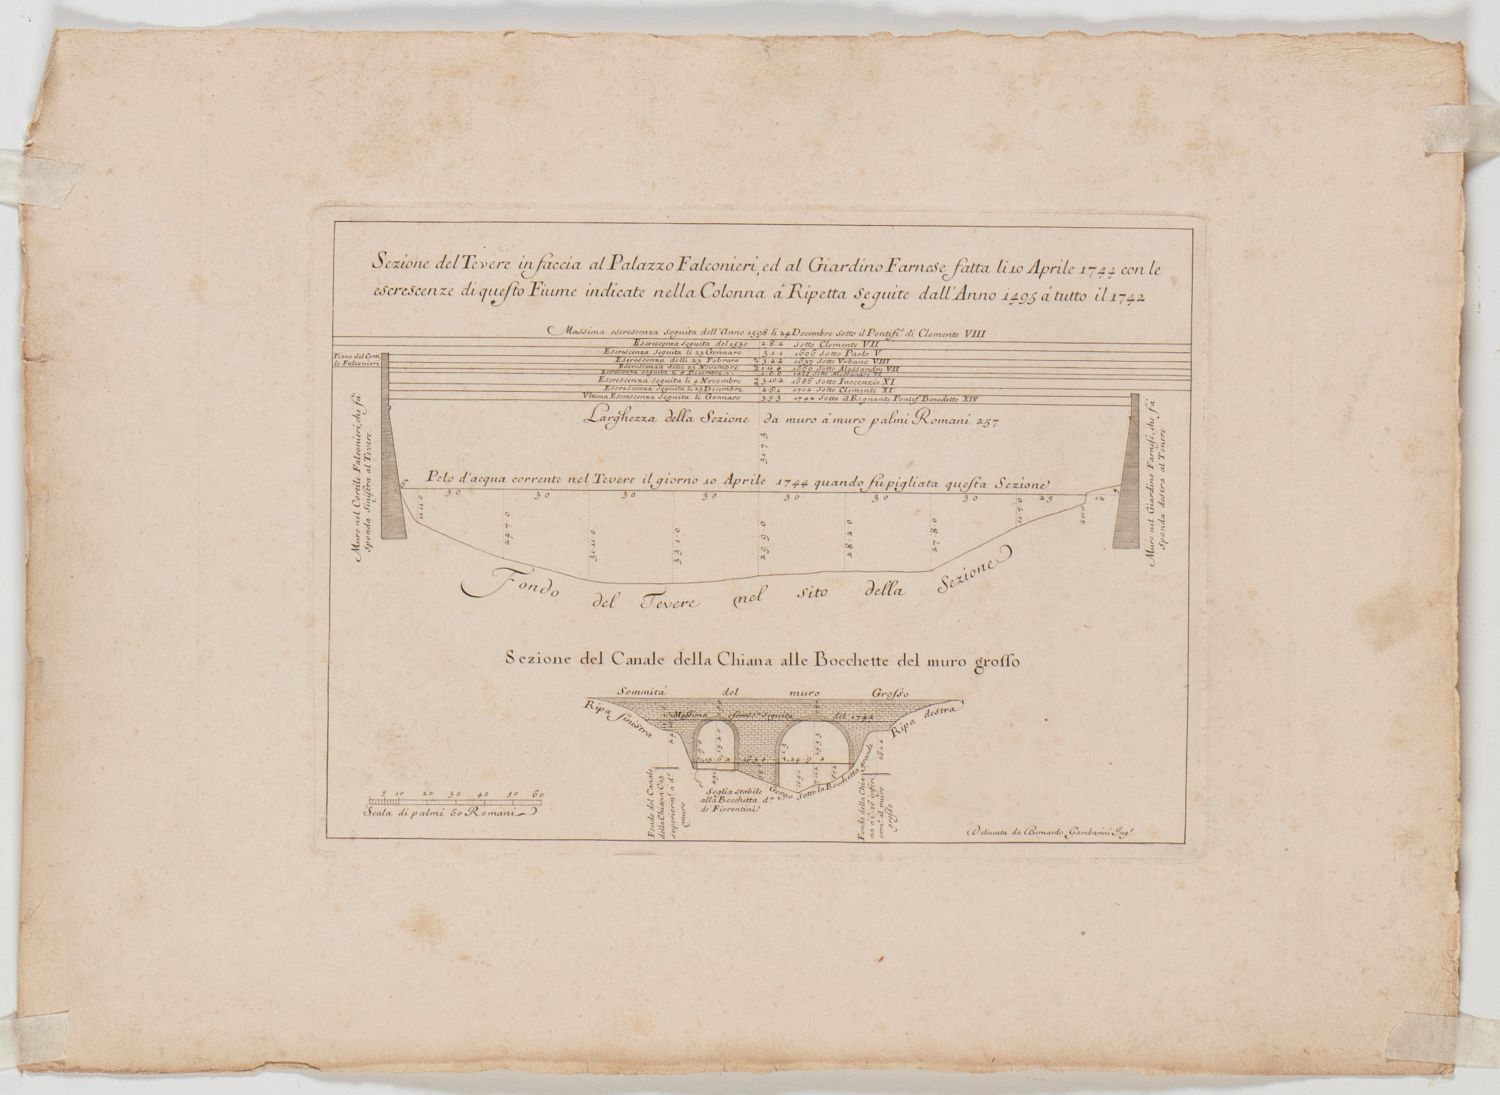 Sezione del Tevere in faccia al Palazzo Falconieri, ed al Giardino Farnese fatta li 10 Aprile 1744 con le
escrescenze di questo Fiume indicate nella Colonna á Ripetta seguite dall'Anno 1495 á tutto il 1742
Massima escrescenza seguita dell'Anno 1598 li 24 Decembre sotto il Pontifi.º di Clemente VIII
Escrescenza seguita del 1530 2.8.2 Sotto Clemente VII
Escrescenza seguita li 23 Gennaro 3.1.1 1606 Sotto Paolo V
Escrescenza delli 22 Febraro 3.2.2 1637 Sotto Urbano VIII
Escrescenza delli 23 Novembre 1660 Sotto Alessandro VII
Escrescenza seguita li Decembre Sotto Alessandro VI
Escrescenza seguita li 4 Novembre 3.10.2 1686 Sotto Inocenzio XI
Escrescenza Seguita li 23 Decembre 2.8.1 1702 Sotto Clemente XI
Vltima Escrescenza Seguita li Gennaro 3.5.3 1742 Sotto il Regnante Pontif. Benedetto XIV
Piano del Corti
le Falconieri
Larghezza della Sezione da muro á muro palmi Romani 257
31.7.3
Pelo d'acqua corrente nel Tevere il giorno 10 Aprile 1744 quando fú pigliata questa Sezione
6 30 30 30 30 30 30 30 25
11.0 24.7.0 31.1.0 33.1.0 29.9.0 28.2.0 27.8.0 11.7.0 2.0.0
Muro nel Cortile Falconieri, che fá
sponda sinistra al Tevere
Muro nel Giardino Farnese, che fá
Sponda destra al Tevere
Fondo del Tevere nel sito della Sezione
Sezione del Canale della Chiana alle Bocchette del muro grosso
Sommitá del muro Grosso
Ripa sinistra
Massima seguita del 1742
Ripa destra
Soglia stabile
alla Bocchetta dº
de Fiorentini
Gorgo sotto la Bocchetta grande
Fondo del Canale
della Chiana
muro
Fondo della Chia
na
al muro
grosso
5 10 20 30 40 50 60
Scala di palmi 60 Romani
Delineata da Bernardo Gambarini Ing.ʳ